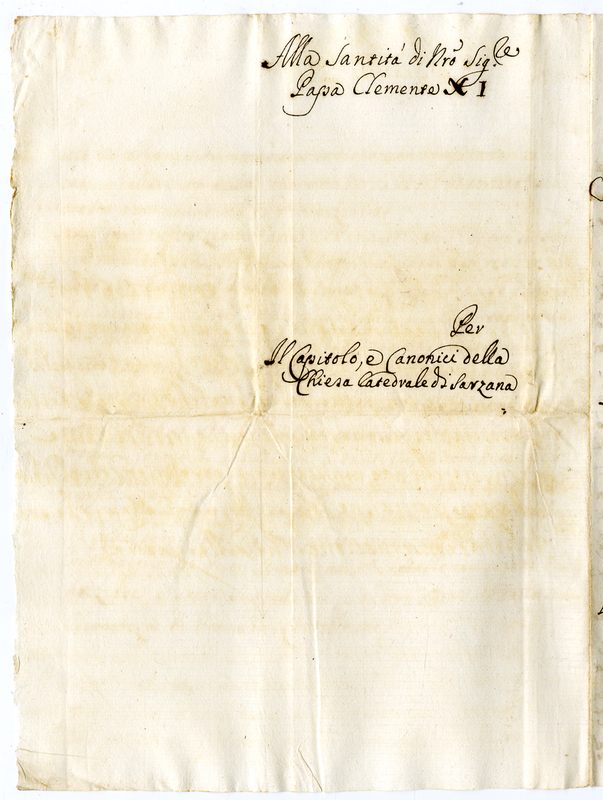 Alla Santità di Nro Sig.re
Papa Clemente XI
Per
Il Capitolo, e Canonici della
Chiesa Catedrale di Sarzana